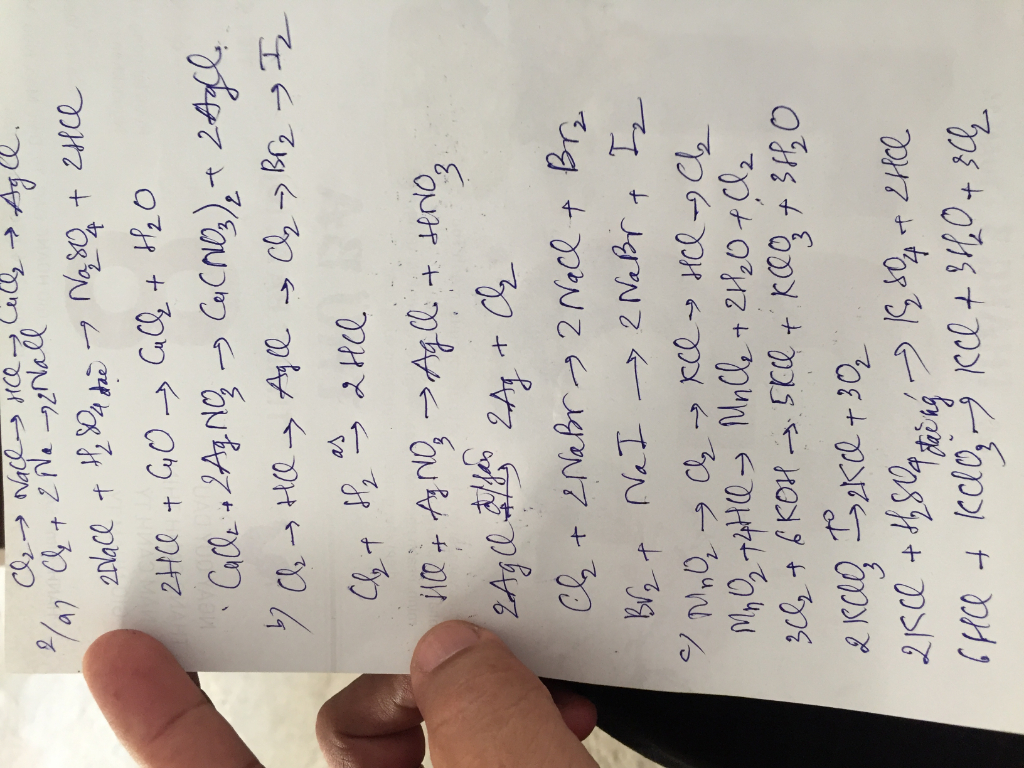 Cl₂ → NaCl → HCl → CuCl₂ → AgCl.
2/ a) Cl₂ + 2Na → 2NaCl
2NaCl + H₂SO₄ → Na₂SO₄ + 2HCl
2HCl + CuO → CuCl₂ + H₂O
CuCl₂ + 2AgNO₃ → Cu(NO₃)₂ + 2AgCl.
b) Cl₂ → HCl → AgCl → Cl₂ → Br₂ → I₂
Cl₂ + H₂ as→ 2HCl
HCl + AgNO₃ → AgCl + HNO₃
2AgCl → 2Ag + Cl₂
Cl₂ + 2NaBr → 2NaCl + Br₂
Br₂ + NaI → 2NaBr + I₂
c) MnO₂ → Cl₂ → KCl → HCl → Cl₂
MnO₂ + 4HCl → MnCl₂ + 2H₂O + Cl₂
3Cl₂ + 6KOH → 5KCl + KClO₃ + 3H₂O
2KClO₃ t°→ 2KCl + 3O₂
2KCl + H₂SO₄ → K₂SO₄ + 2HCl
6HCl + KClO₃ → KCl + 3H₂O + 3Cl₂